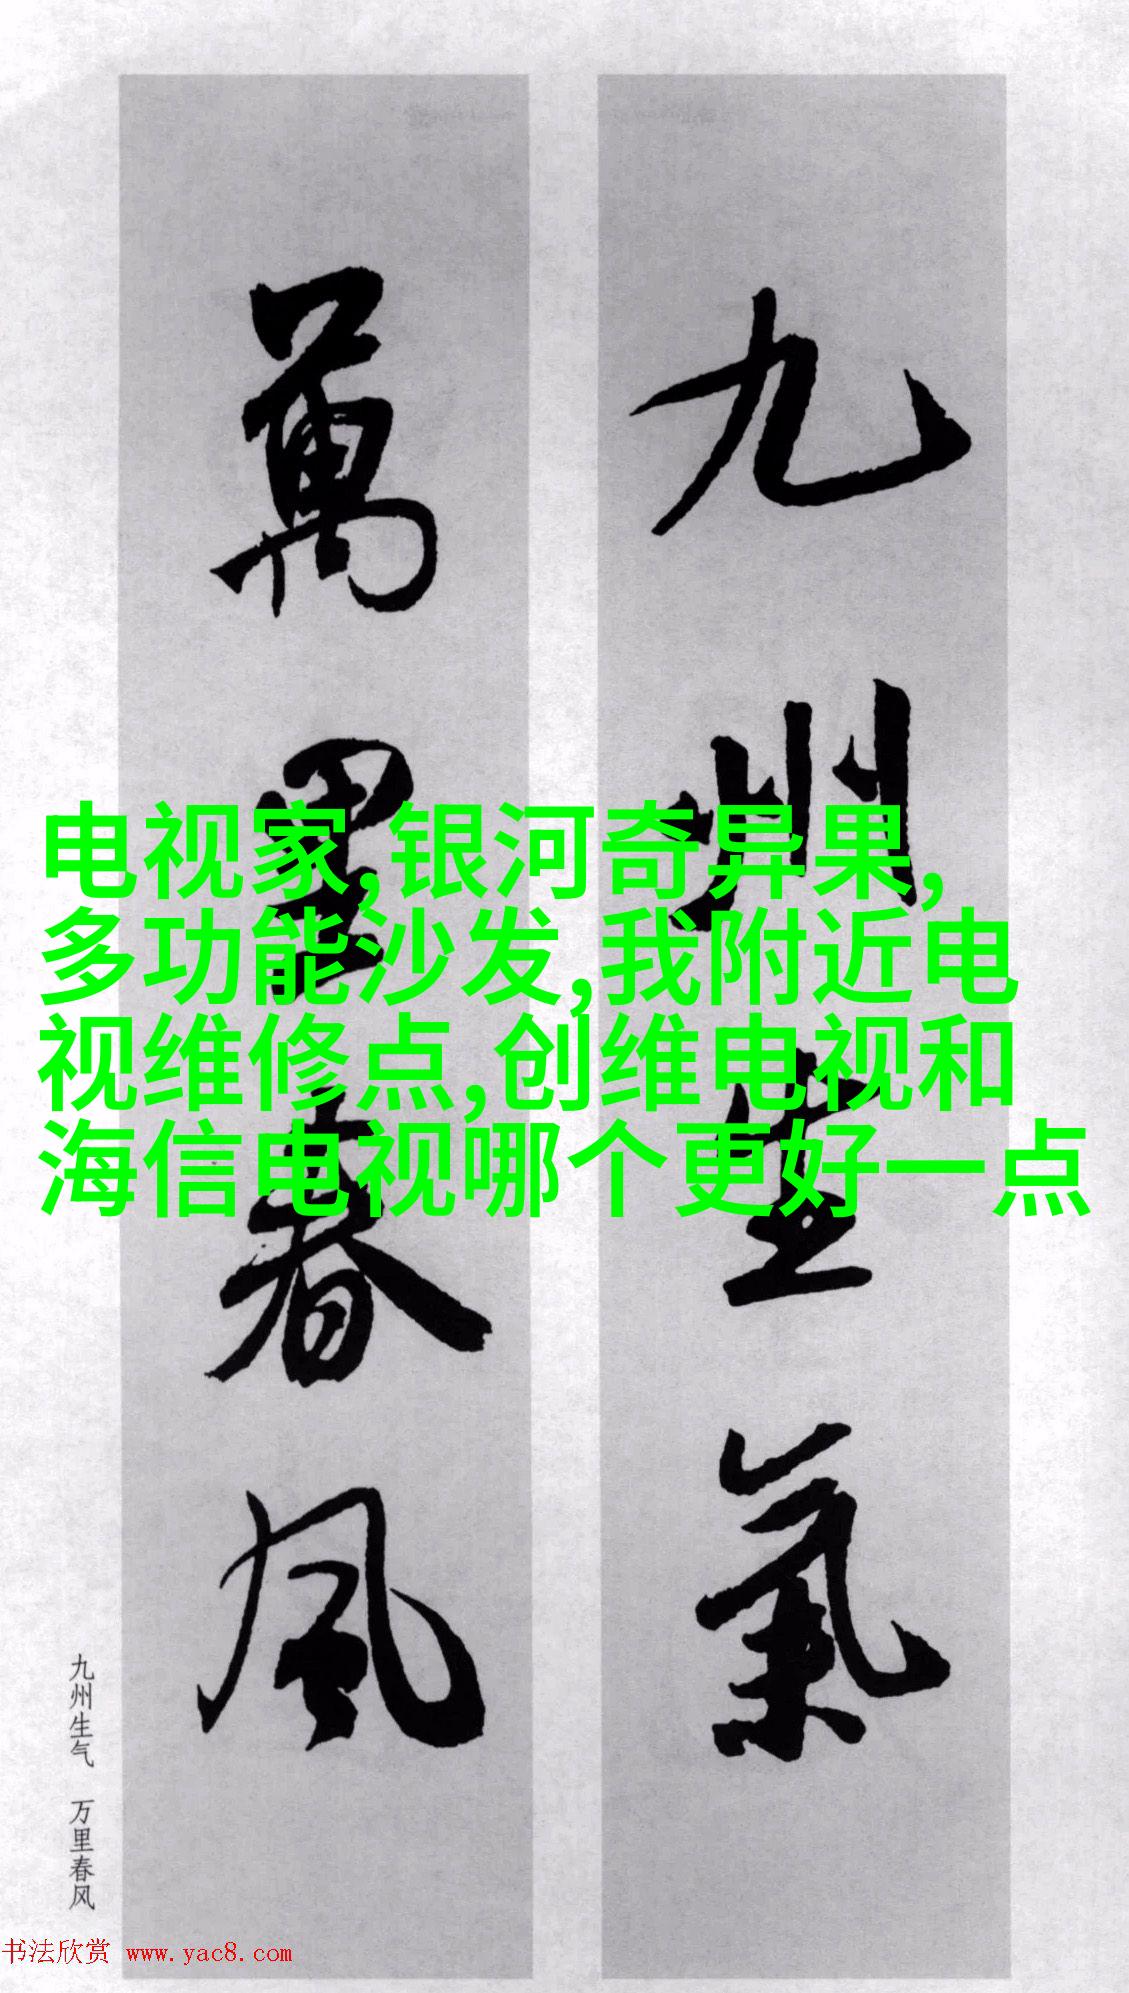 九州生氣
萬里春風
电视家,银河奇异果,
多功能沙发,我附近电
视维修点,创维电视和
海信电视哪个更好一点
九州生气 万里春风
书法欣赏 www.yac8.com